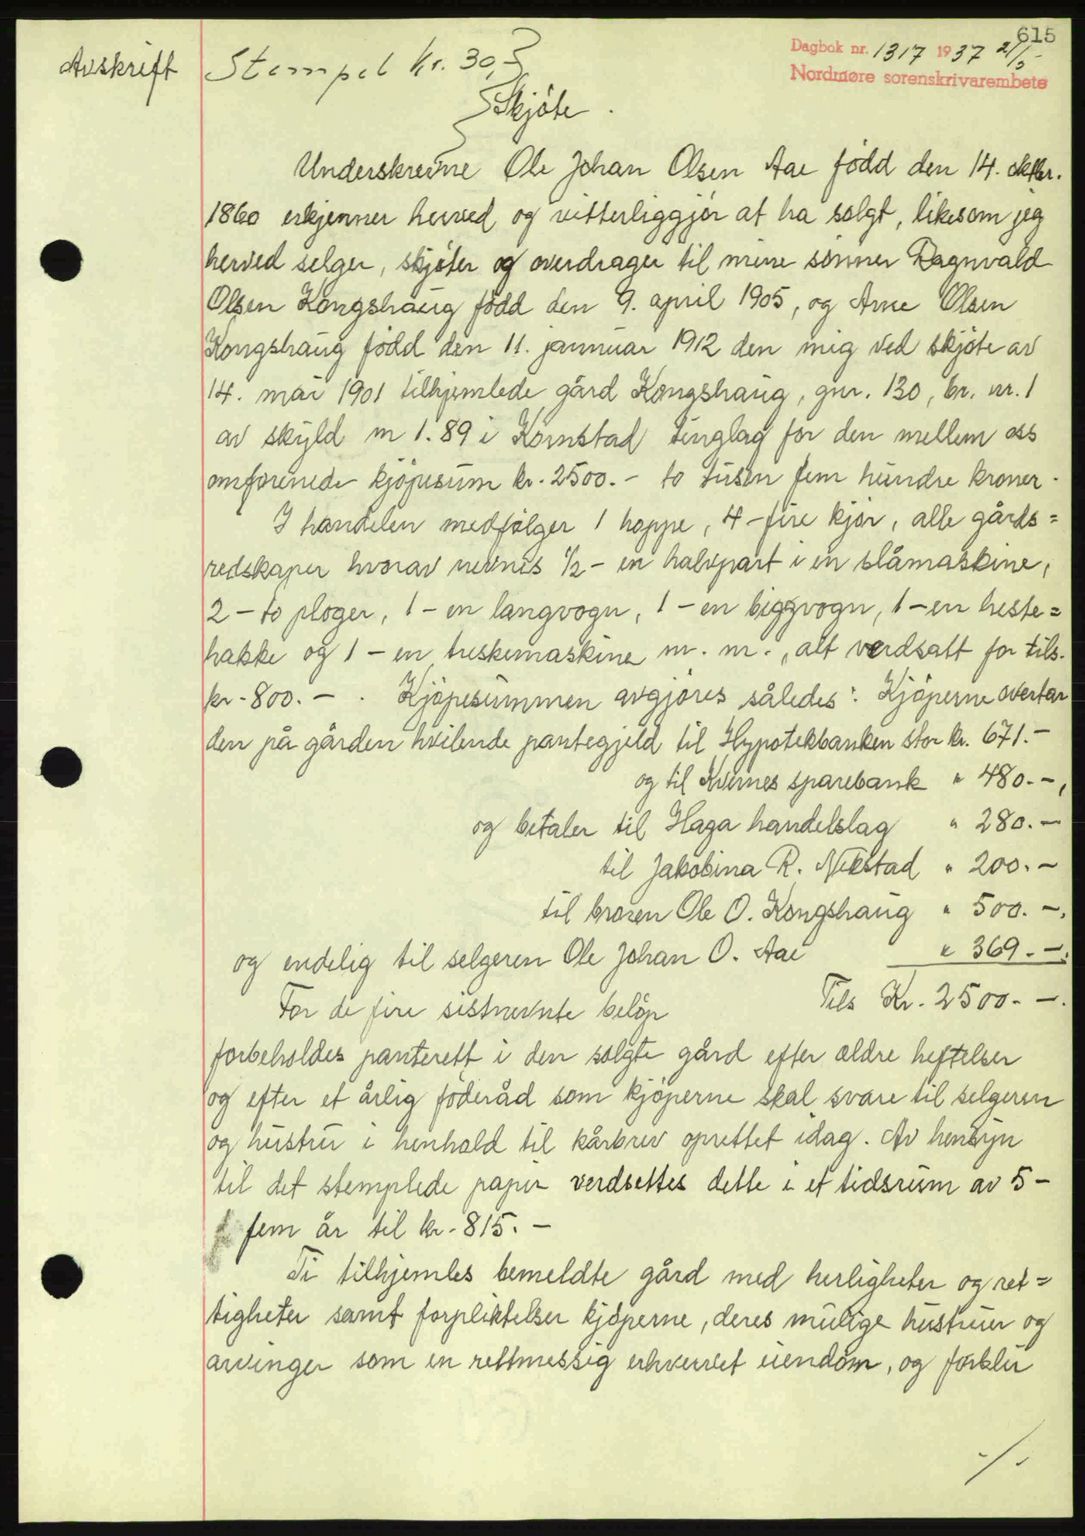 615
Dagbok nr. 1317 1937 21/5
Nordmøre sorenskrivarembete
Avskrift
Stempel kr. 30,-
Skjöte.
Underskrevne Ole Johan Olsen Aae född den 14. oktbr.
1860 erkjenner herved og vitterliggjör at ha solgt, likesom jeg
herved selger, skjöter og overdrager til mine sönner Ragnvald
Olsen Kongshaug född den 9. april 1905, og Arne Olsen
Kongshaug född den 11. januar 1912 den mig ved skjöte av
14. mai 1901 tilhjemlede gård Kongshaug, gnr. 130, br. nr. 1
av skyld m 1.89 i Kornstad tinglag for den mellem oss
omforenede kjöpesum kr. 2500.- to tusen fem hundre kroner.
I handelen medfölger 1 hoppe, 4 - fire kjör, alle gårds=
redskaper hvorav nevnes 1/2 - en halvpart i en slåmaskine,
2 - to ploger, 1 - en langvogn, 1 - en biggvogn, 1 - en heste=
hakke og 1 - en treskemaskine m. m., alt verdsatt for tils.
kr. 800.- . Kjöpesummen avgjöres således: Kjöperne overtar
den på gården hvilende pantegjeld til Hypotekbanken stor kr. 671.-
og til Kvernes sparebank " 480.-,
og betaler til Haga handelslag " 280.-
til Jakobina R. Nekstad " 200.-
til broren Ole O. Kongshaug " 500.-.
og endelig til selgeren Ole Johan O. Aae " 369.-.
For de fire sistnevnte belöp Tils Kr. 2500.-.
forbeholdes panterett i den solgte gård efter ældre heftelser
og efter et årlig föderåd som kjöperne skal svare til selgeren
og hustru i henhold til kårbrev oprettet idag. Av hensyn
til det stemplede papir verdsettes dette i et tidsrum av 5 -
fem år til kr. 815.-
Ti tilhjemles bemeldte gård med herligheter og ret=
tigheter samt forpliktelser kjöperne, deres mulige hustruer og
arvinger som en rettmessig erhvervet eiendom, og forblir
./.